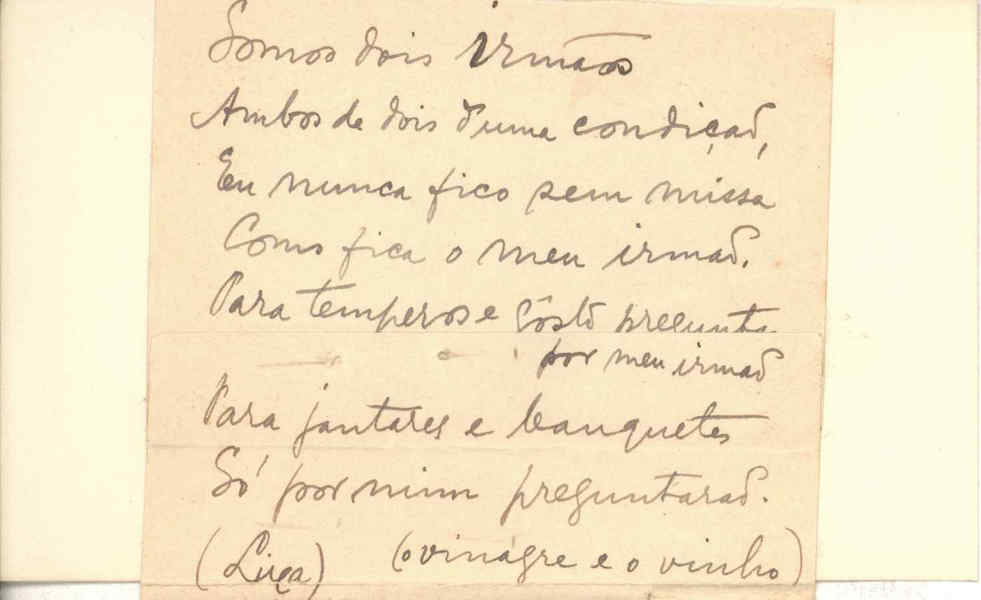 Somos dois irmãos
Ambos de dois d'uma condição,
Eu nunca fico sem missa
Como fica o meu irmão.
Para temperos e gôsto pregunta
por meu irmão
Para jantares e banquetes
Só por mim preguntarão.
(Liça) (o vinagre e o vinho)